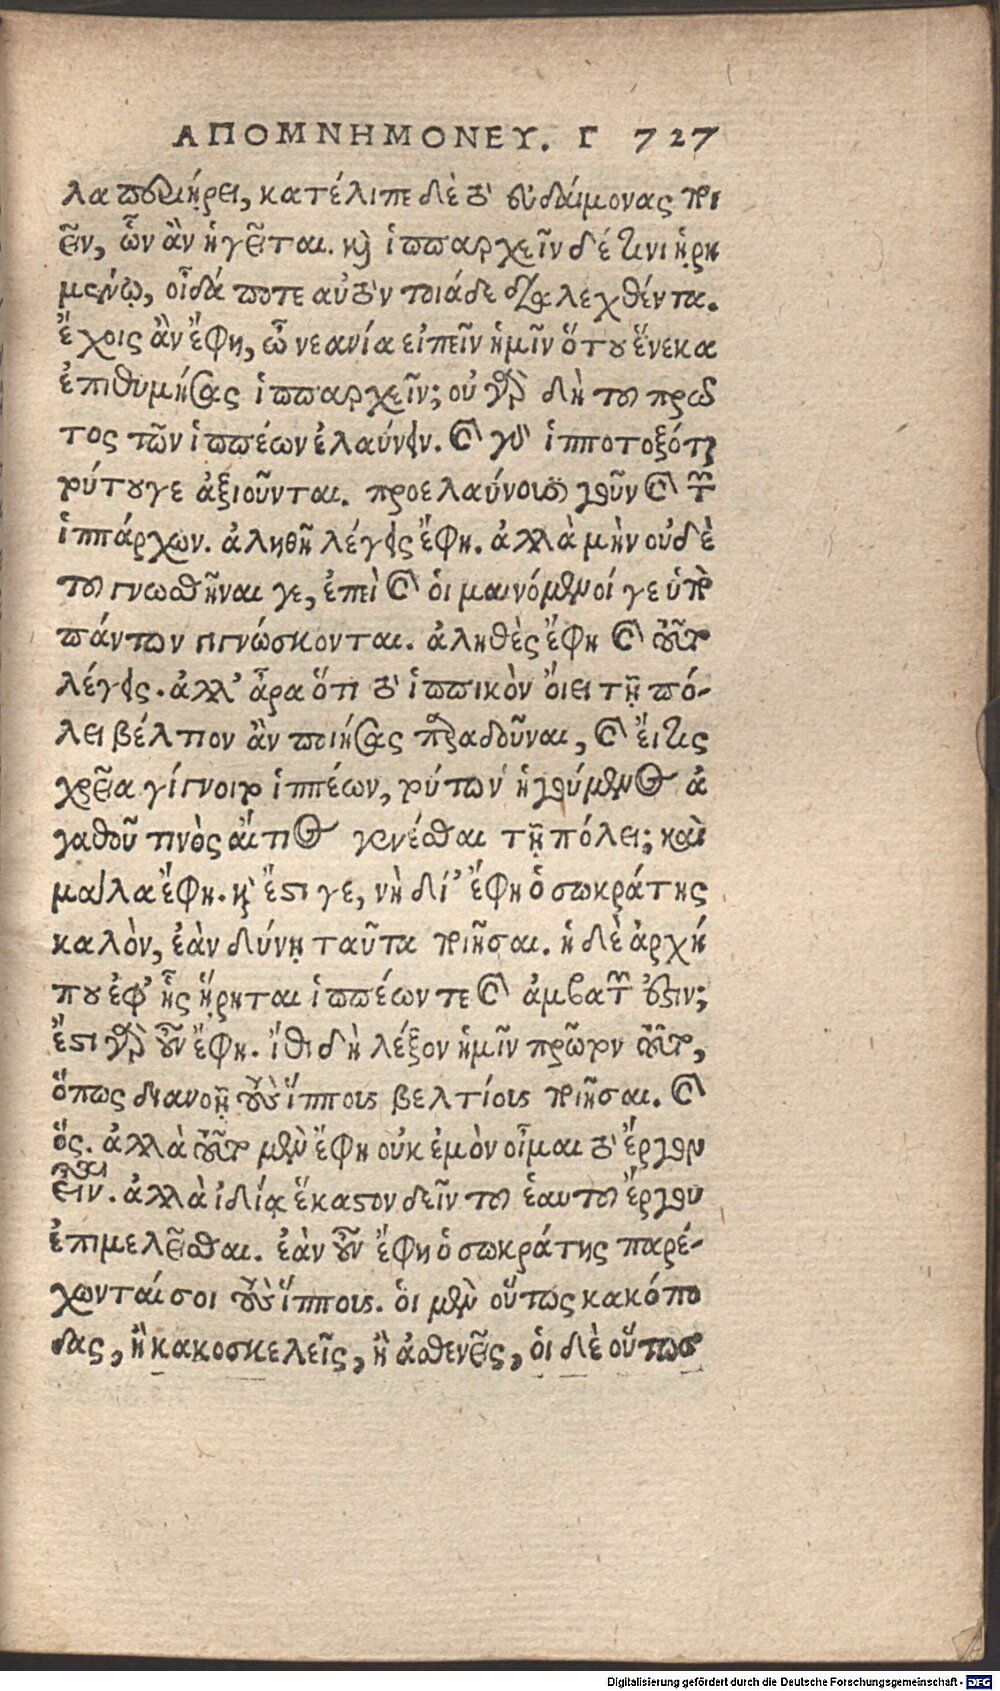 ΑΠΟΜΝΗΜΟΝΕΥ. Γ 727
λα περιῄρει, κατέλιπε δὲ τὸ εὐδαίμονας ποι
εῖν, ὧν ἂν ἡγεῖται. καὶ ἱππαρχεῖν δέ τινι ᾑρη
μένῳ, οἶδά ποτε αὐτὸν τοιάδε διαλεχθέντα.
ἔχοις ἂν ἔφη, ὦ νεανία εἰπεῖν ἡμῖν ὅτου ἕνεκα
ἐπιθυμήσας ἱππαρχεῖν; οὐ γὰρ δὴ τοῦ πρῶ
τος τῶν ἱππέων ἐλαύνειν. καὶ γὰρ ἱπποτοξόται
τούτου γε ἀξιοῦνται. προελαύνουσι γοῦν καὶ τῶν
ἱππάρχων. ἀληθῆ λέγεις ἔφη. ἀλλὰ μὴν οὐδὲ
τοῦ γνωσθῆναι γε, ἐπεὶ καὶ οἱ μαινόμενοί γε ὑπὸ
πάντων γιγνώσκονται. ἀληθὲς ἔφη καὶ τοῦτο
λέγεις. ἀλλ' ἆρα ὅτι τὸ ἱππικὸν οἴει τῇ πό-
λει βέλτιον ἂν ποιήσας παραδοῦναι, καὶ εἴ τις
χρεῖα γίγνοιτο ἱππέων, τούτων ἡγούμενος ἀ
γαθοῦ τινὸς αἴτιος γενέσθαι τῇ πόλει; καὶ
μάλα ἔφη. καὶ ἔστι γε, νὴ Δί' ἔφη ὁ σωκράτης
καλὸν, ἐὰν δύνῃ ταῦτα ποιῆσαι. ἡ δὲ ἀρχή
που ἐφ' ἧς ᾕρηται ἱππέων τε καὶ ἀμβατῶν ἐστιν;
ἔστι γὰρ οὖν ἔφη. ἴθι δὴ λέξον ἡμῖν πρῶτον τοῦτο,
ὅπως διανοῇ τοὺς ἵππους βελτίους ποιῆσαι. καὶ
ὅς. ἀλλὰ τοῦτο μὲν ἔφη οὐκ ἐμὸν οἶμαι τὸ ἔργον
εἶναι. ἀλλὰ ἰδίᾳ ἕκαστον δεῖν τοῦ ἑαυτοῦ ἔργου
ἐπιμελεῖσθαι. ἐὰν οὖν ἔφη ὁ σωκράτης παρέ-
χωνταί σοι τοὺς ἵππους. οἱ μὲν οὕτως κακόπο
δας, ἢ κακοσκελεῖς, ἢ ἀσθενεῖς, οἱ δὲ οὕτως
Digitalisierung gefördert durch die Deutsche Forschungsgemeinschaft - DFG